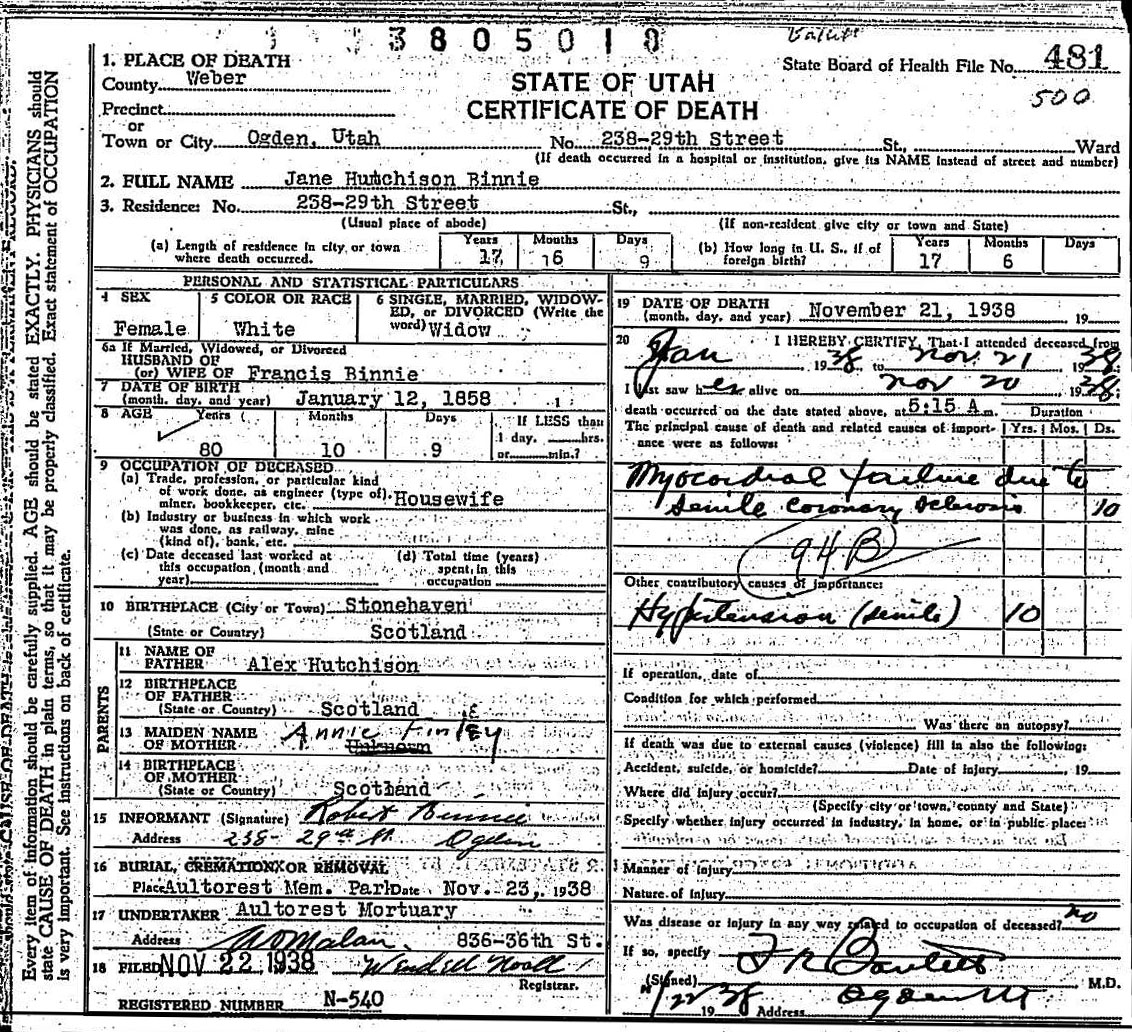 3 8 0 5 0 1 8
State Board of Health File No. 481
500
1. PLACE OF DEATH
County Weber
STATE OF UTAH
CERTIFICATE OF DEATH
Precinct
or
Town or City Ogden, Utah No. 238-29th Street St., Ward
(If death occurred in a hospital or institution, give its NAME instead of street and number)
2. FULL NAME Jane Hutchison Binnie
3. Residence: No. 238-29th Street St.,
(Usual place of abode) (If non-resident give city or town and State)
(a) Length of residence in city or town where death occurred. Years 17 Months 6 Days 9
(b) How long in U. S., if of foreign birth? Years 17 Months 6 Days
PERSONAL AND STATISTICAL PARTICULARS
4 SEX Female
5 COLOR OR RACE White
6 SINGLE, MARRIED, WIDOWED, or DIVORCED (Write the word) Widow
6a If Married, Widowed, or Divorced
HUSBAND OF
(or) WIFE OF Francis Binnie
7 DATE OF BIRTH
(month, day, and year) January 12, 1858
8 AGE Years 80 Months 10 Days 9 If LESS than 1 day, hrs. or min.?
9 OCCUPATION OF DECEASED
(a) Trade, profession, or particular kind of work done, as engineer (type of), miner, bookkeeper, etc. Housewife
(b) Industry or business in which work was done, as railway, mine (kind of), bank, etc.
(c) Date deceased last worked at this occupation, (month and year)
(d) Total time (years) spent in this occupation
10 BIRTHPLACE (City or Town) Stonehaven
(State or Country) Scotland
PARENTS
11 NAME OF FATHER Alex Hutchison
12 BIRTHPLACE OF FATHER
(State or Country) Scotland
13 MAIDEN NAME OF MOTHER Annie Finley
Unknown
14 BIRTHPLACE OF MOTHER
(State or Country) Scotland
15 INFORMANT (Signature) Robert Binnie
Address 238- 29th St. Ogden
16 BURIAL, CREMATION OR REMOVAL
Place Aultorest Mem. Park Date Nov. 23, 1938
17 UNDERTAKER Aultorest Mortuary
Address 836-36th St.
18 FILED NOV 22 1938 Wendell Noall
Registrar.
REGISTERED NUMBER N-540
19 DATE OF DEATH
(month, day, and year) November 21, 1938 19
20 I HEREBY CERTIFY, That I attended deceased from
Jan 1938, to Nov 21 1938.
I last saw her alive on Nov 20 1938.
death occurred on the date stated above, at 5:15 A m. Duration
The principal cause of death and related causes of importance were as follows: Yrs. Mos. Ds.
Myocardial failure due to
senile coronary sclerosis 10
94 B
Other contributory causes of importance:
Hypertension (senile) 10
If operation, date of
Condition for which performed
Was there an autopsy?
If death was due to external causes (violence) fill in also the following:
Accident, suicide, or homicide? Date of injury 19
Where did injury occur?
(Specify city or town, county and State)
Specify whether injury occurred in industry, in home, or in public place:
Manner of injury
Nature of injury
Was disease or injury in any way related to occupation of deceased? no
If so, specify
(Signed) M.D.
11/22 1938 Address Ogden Ut
Every item of information should be carefully supplied. AGE should be stated EXACTLY. PHYSICIANS should
state CAUSE OF DEATH in plain terms, so that it may be properly classified. Exact statement of OCCUPATION
is very important. See instructions on back of certificate.